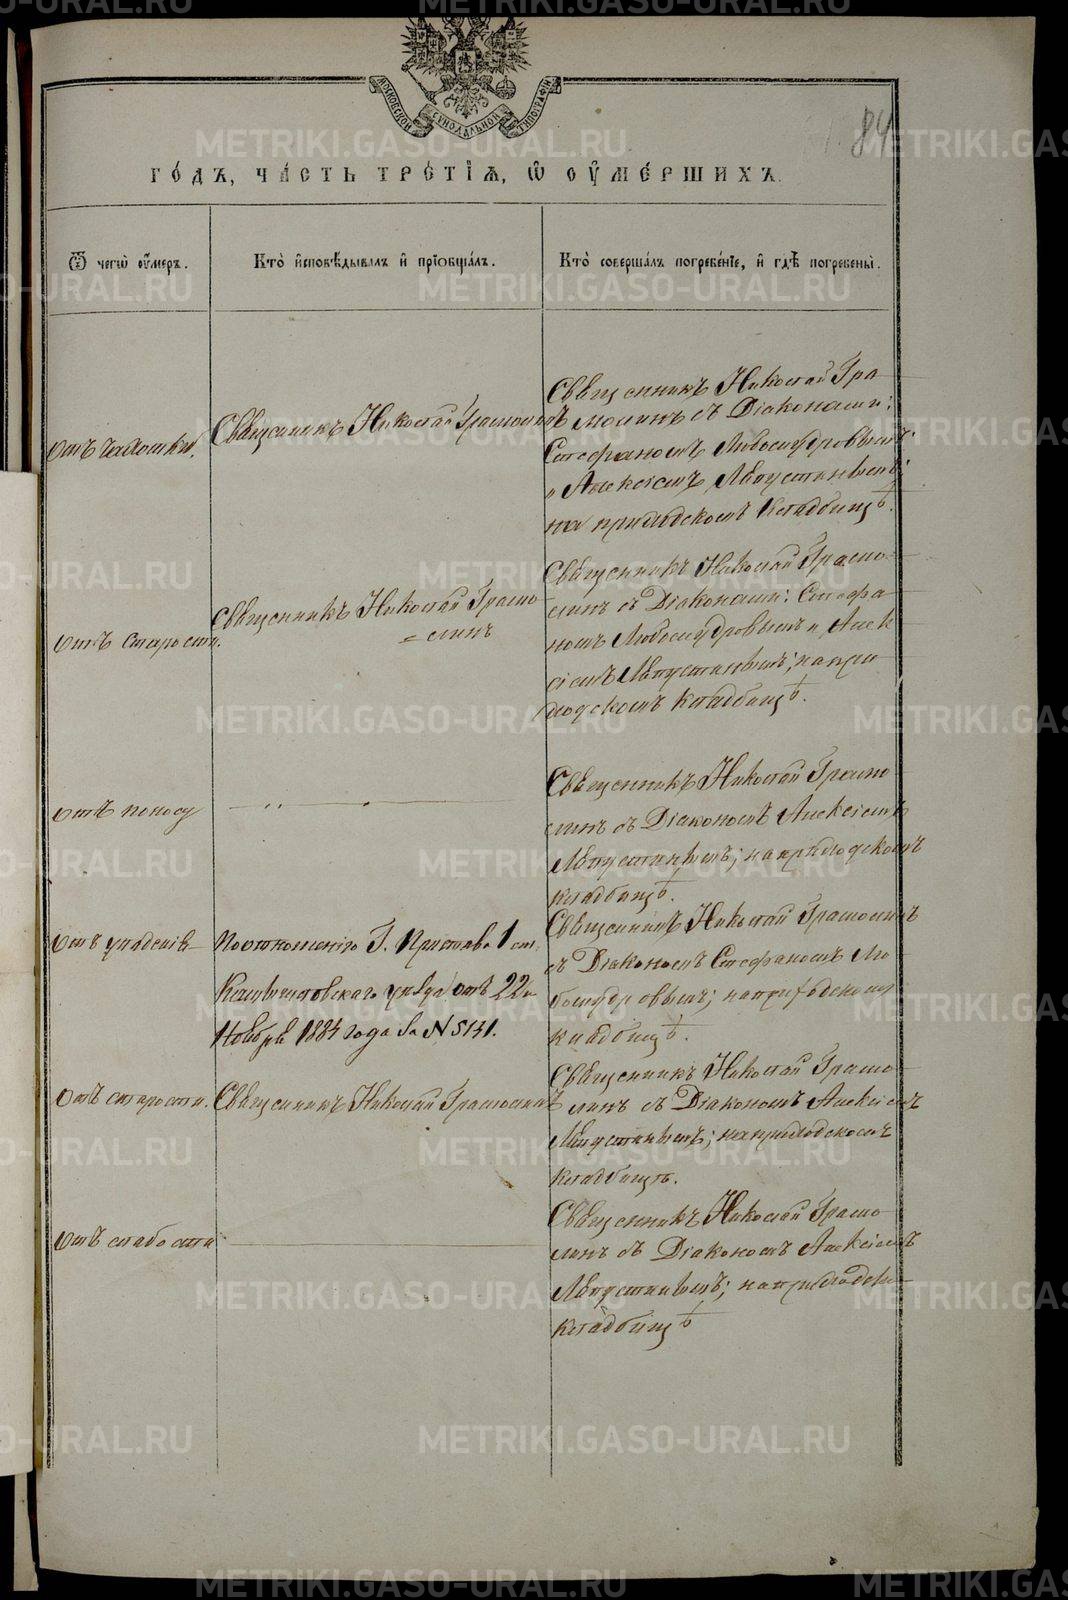 МОСКОВСКОЙ СѴНОДАЛЬНОЙ ТИПОГРАФІИ
84
ГО́ДЪ, ЧА́СТЬ ТРЕ́ТІѦ, Ѡ ОУМЕ́РШИХЪ.
Ѿ чегѡ̀ оу́меръ.
Кто̀ и҆сповѣ́дывалъ и҆ прїѡбща́лъ.
Кто̀ соверша́лъ погребе́нїе, и҆ гдѣ̀ погребены̀.
отъ чахотки.
Священникъ Николай Грамолинъ
Священникъ Николай Гра
молинъ съ Діаконами:
Стефаномъ Любомудровымъ
и Алексіемъ
на приходскомъ кладбищѣ.
отъ старости.
Священникъ Николай Грамо
=линъ
Священникъ Николай Грамо-
линъ съ Діаконами: Стефа
номъ Любомудровымъ и Алек
сіемъ на при
ходскомъ кладбищѣ.
отъ поносу
Священникъ Николай Грамо
линъ съ Діакономъ Алексіемъ
на приходскомъ
кладбищѣ.
отъ
По отношенію Г. Пристава 1 ст.
Камышловскаго уѣзда отъ 22
Ноября 1884 года за N 5141.
Священникъ Николай Грамолинъ
съ Діакономъ Стефаномъ Лю
бомудровымъ; на приходскомъ
кладбищѣ.
отъ старости.
Священникъ Николай Грамолинъ
Священникъ Николай Грамо-
линъ съ Діакономъ Алексіемъ
на приходскомъ
кладбищѣ.
отъ слабости
Священникъ Николай Грамо
линъ съ Діакономъ Алексіемъ
на приходском
кладбищѣ
METRIKI.GASO-URAL.RU